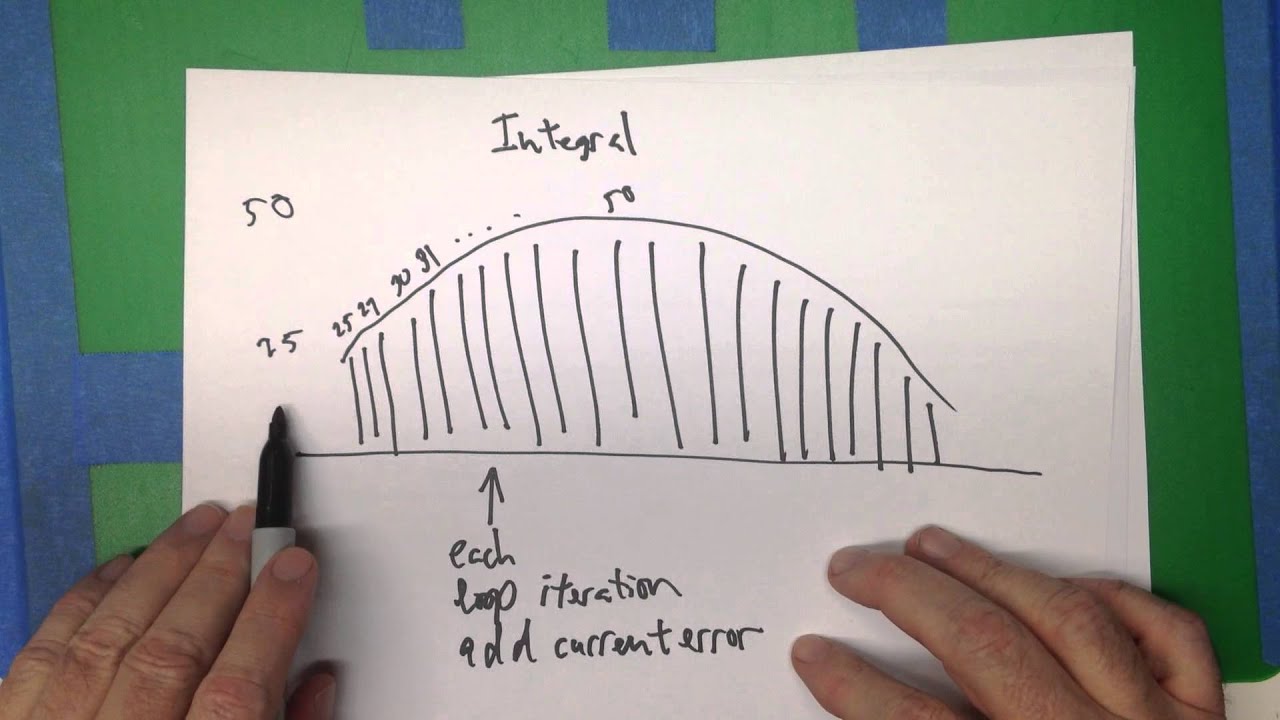 Integral
50
50
25 27 30 31 ....
25
each
loop iteration
add current error